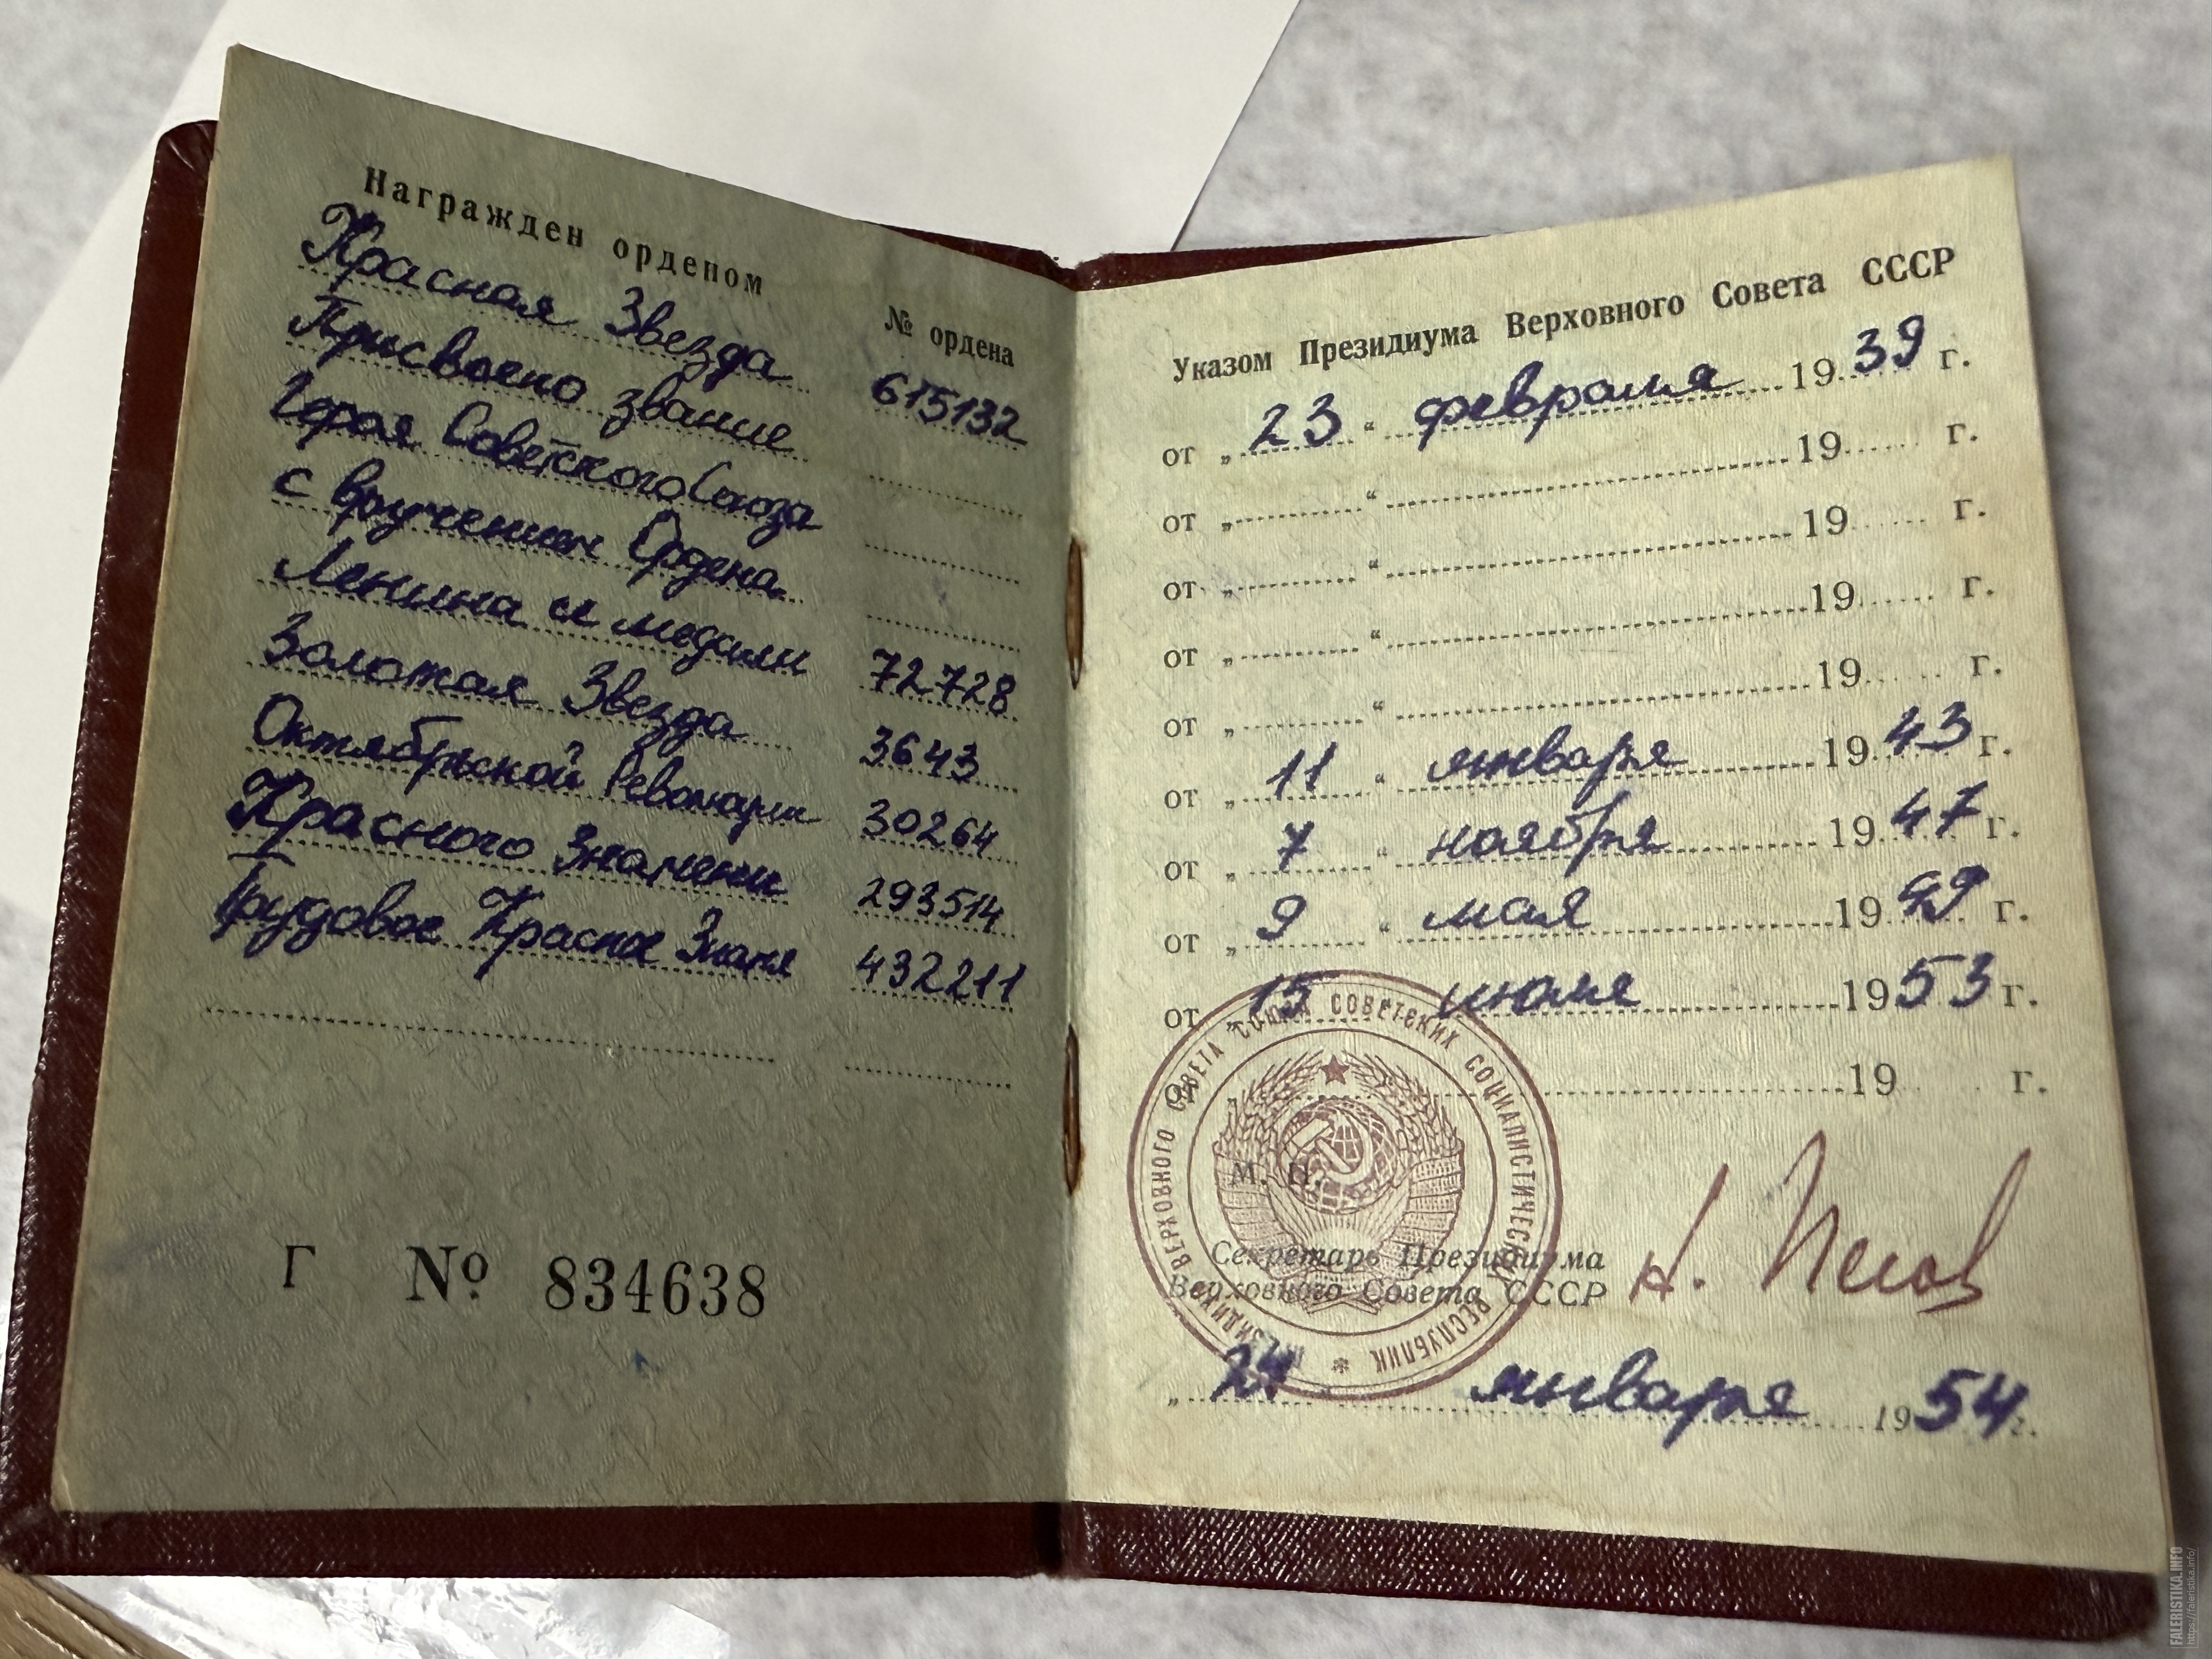 Награжден орденом
№ ордена
Красная Звезда 615132
Присвоено звание
Героя Советского Союза
с вручением Ордена
Ленина и медали 72728
Золотая Звезда 3643
Октябрьской Революции 30264
Красного Знамени 293514
Трудовое Красное Знамя 432211
Г № 834638
Указом Президиума Верховного Совета СССР
от „ 23 “ февраля 1939 г.
от „ “ 19 г.
от „ “ 19 г.
от „ “ 19 г.
от „ “ 19 г.
от „ 11 “ января 1943 г.
от „ 7 “ ноября 1947 г.
от „ 9 “ мая 1949 г.
от „ 15 июля 1953 г.
от „ 19 г.
ПРЕЗИДИУМ ВЕРХОВНОГО СОВЕТА СОЮЗА СОВЕТСКИХ СОЦИАЛИСТИЧЕСКИХ РЕСПУБЛИК *
М. П.
Секретарь Президиума
Верховного Совета СССР
„ 24 января 1954 г.
FALERISTIKA.INFO
https://faleristika.info/